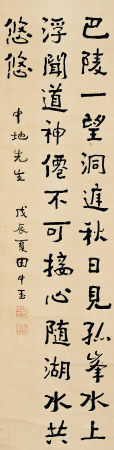 巴陵一望洞庭秋日見孤峯水上
浮聞道神僊不可接心随湖水共
悠悠
中地先生 戊辰夏田中玉